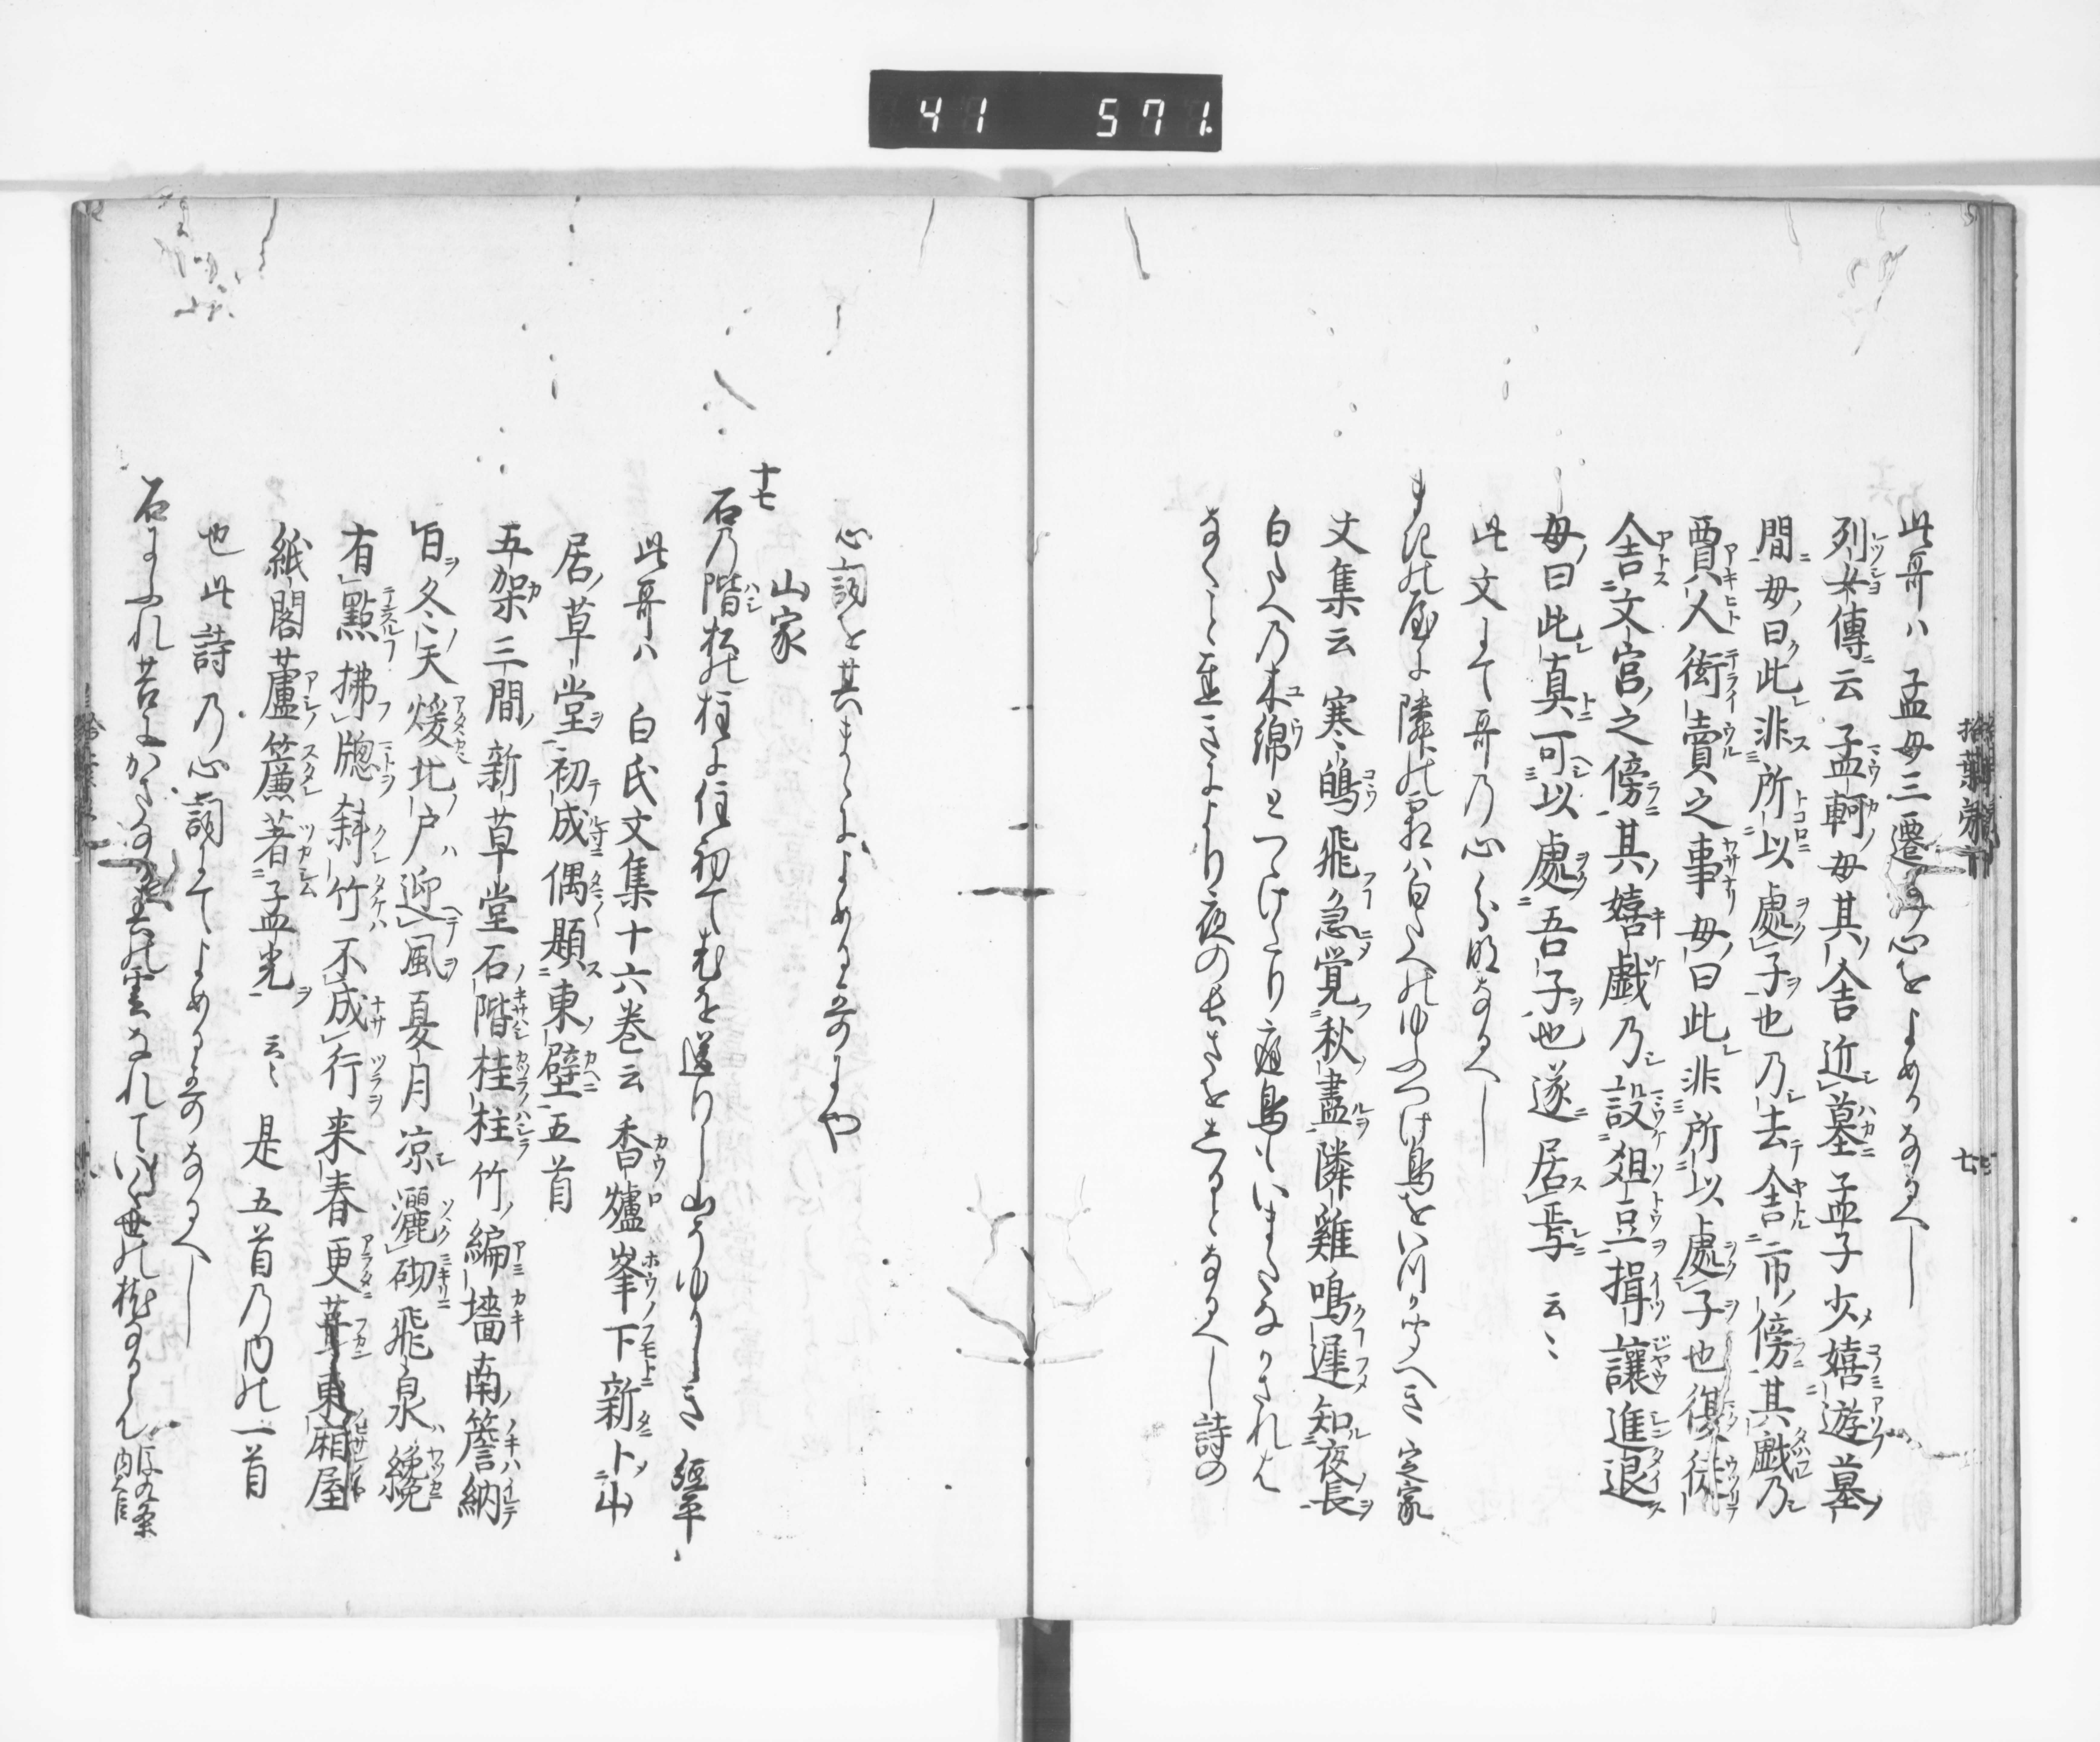 41 571
此哥ハ孟母三遷の心をよめるなるへし
列女傳云孟軻母其舎近墓孟子少嬉遊墓
間母曰此非所以處子也乃去舎市傍其戯乃
賈人衒賣之事母曰此非所以處子也復徙
舎文官之傍其嬉戯乃設爼豆揖讓進退
母曰此真可以處吾子也遂居焉云〻
此文にて哥乃心分明なるへし
まきの屋に隣の霜ハ白たへのゆふつけ鳥をいつか聞へき 定家
文集云寒鴊飛急覚秋盡隣雞鳴遅知夜長
白たへの木綿とつけたり庭鳥もいまたなかされは
なく〻遅きにより夜の長さをしると なるへし詩の
心詞を其まゝによめる哥にや
山家
十七
石乃階松の柱に住初て老を送りし山そゆかしき 經平
此哥ハ白氏文集十六巻云香爐峯下新卜山
居草堂初成偶題東壁五首
五架三間新草堂石階桂柱竹編墻南簷納
日冬天煖北戸迎風夏月凉灑砌飛泉纔
有點拂牕斜竹不成行来春更葺東廂屋
紙閣蘆簾著孟光 云〻 是五首乃内の一首
也此詩乃心詞にてよめる哥なるへし